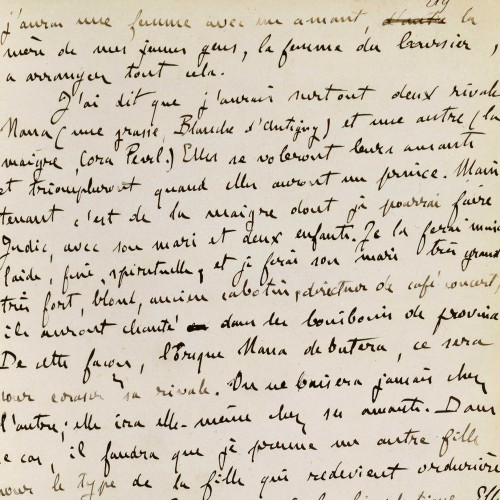 j'aurai une femme avec un amant, la
mère de mes jeunes gens, la femme du boursier,
a arranger tout cela.
J'ai dit que j'aurais surtout deux rivales
Nana (une grasse, Blanche d'Antigny) et une autre (la
maigre, Cora Pearl.) Elles se voleront leurs amants
et triompheront quand elles auront un prince. Main
tenant c'est de la maigre dont je pourrai faire
Judic, avec son mari et deux enfants. Je la ferai moins
laide, fine, spirituelle, et je ferai son mari très grand
très fort, blond, ancien cabotin, directeur de café concert,
ils auront chanté dans les bouibouis de province
De cette façon, lorsque Nana débutera, ce sera
pour écraser sa rivale. On ne baisera jamais chez
l'autre; elle ira elle-même chez ses amants. Dans
ce cas, il faudra que je prenne une autre fille
pour le type de la fille qui redevient ordurière